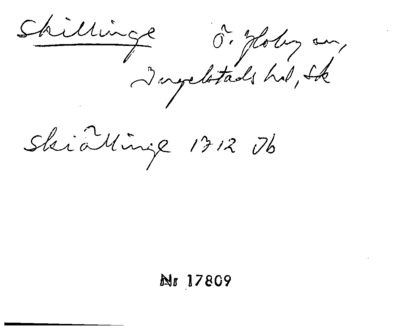 Skillinge Ö. Hoby sn,
Ingelstads hd, Sk
Skiällinge 1712 Jb
Nr 17809